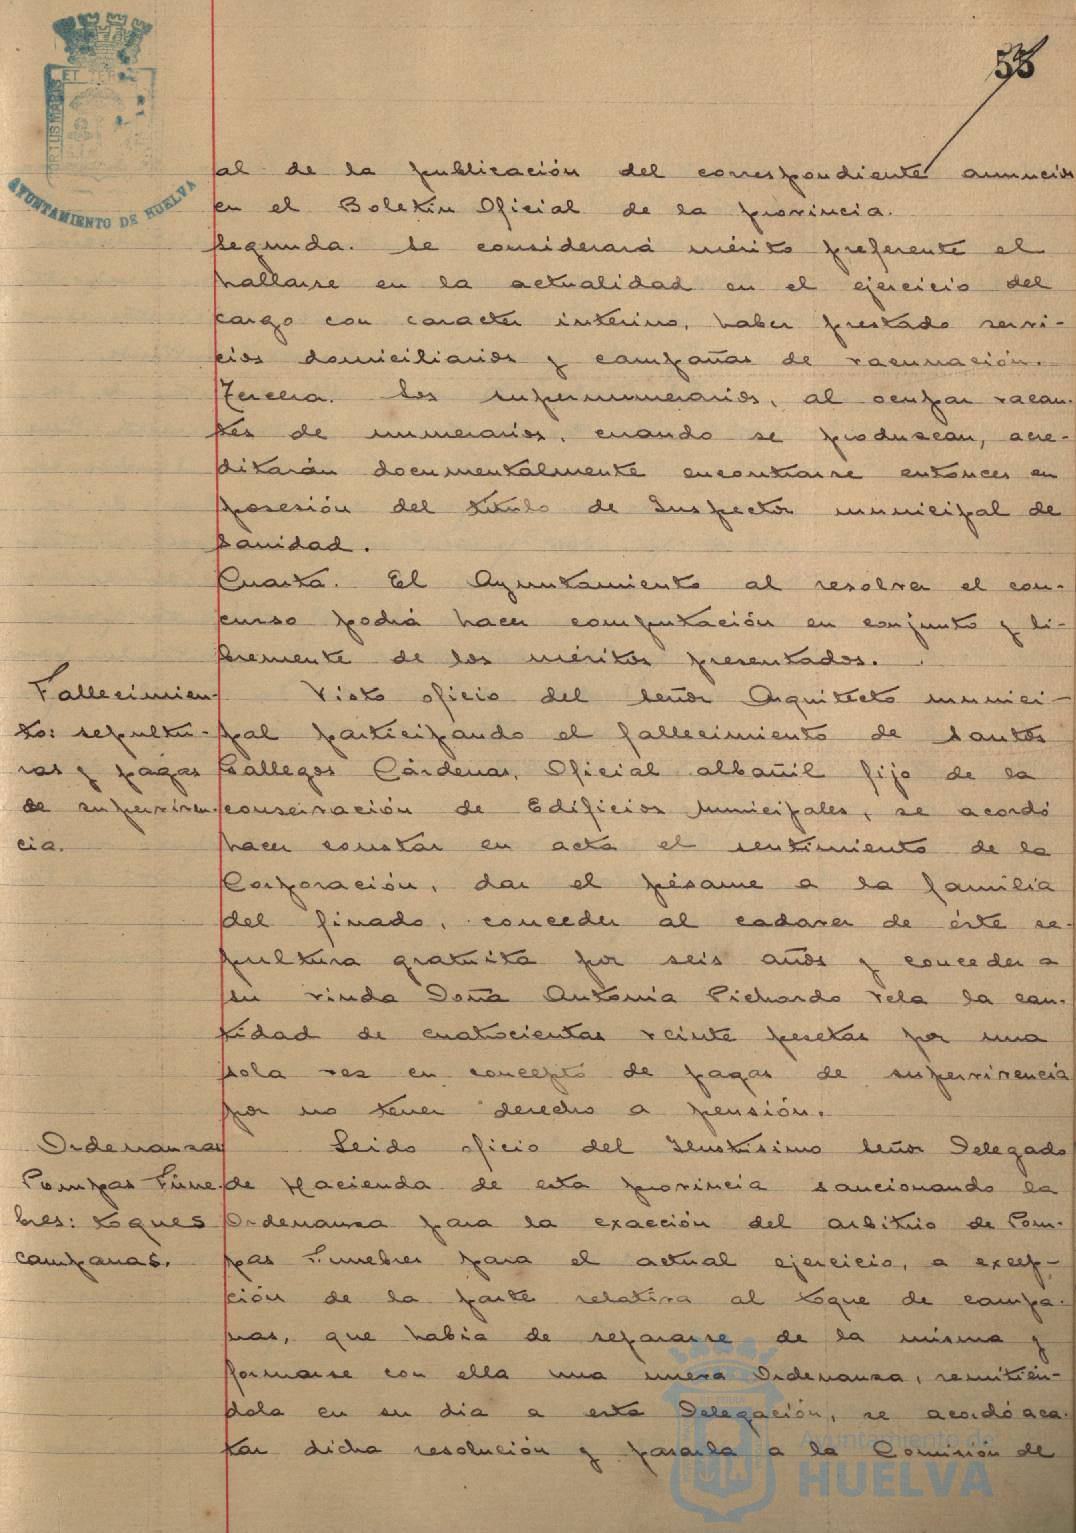 55
ET TERR
PORTUS MARIS
AYUNTAMIENTO DE HUELVA
al de la publicación del correspondiente anuncio
en el Boletín Oficial de la provincia.
Segunda. Se considerará mérito preferente el
hallarse en la actualidad en el ejercicio del
cargo con caracter interino, haber prestado servi-
cios domiciliarios y campañas de vacunación.
Tercera. Los supernumerarios, al ocupar vacan-
tes de numerarios, cuando se produscan, acre-
ditarán documentalmente encontrarse entonces en
posesión del título de Inspector municipal de
Sanidad.
Cuarta. El Ayuntamiento al resolver el con-
curso podrá hacer computación en conjunto y li-
bremente de los méritos presentados.
Fallecimien-
to: sepultu-
ras y pagas
de superviven-
cia.
Visto oficio del Señor Arquitecto munici-
pal participando el fallecimiento de Santos
Gallegos Cárdenas, Oficial albañil fijo de la
conservación de Edificios Municipales, se acordó
hacer constar en acta el sentimiento de la
Corporación, dar el pésame a la familia
del finado, conceder al cadaver de éste se-
pultura gratuita por seis años y conceder a
su viuda Doña Antonia Pichardo Vela la can-
tidad de cuatrocientas veinte pesetas por una
sola vez en concepto de pagas de supervivencia
por no tener derecho a pensión.
Ordenanzas
Pompas Fúne-
bres: toques
campanas.
Leido oficio del Ilustísimo Señor Delegado
de Hacienda de esta provincia sancionando la
Ordenanza para la exacción del arbitrio de Pom-
pas Funebres para el actual ejercicio, a excep-
ción de la parte relativa al toque de campa-
nas, que habia de separarse de la misma y
formarse con ella una nueva Ordenanza, remitién-
dola en su dia a esta Delegación, se acordó aca-
tar dicha resolución y pasarla a la Comisión de
Ayuntamiento de
HUELVA